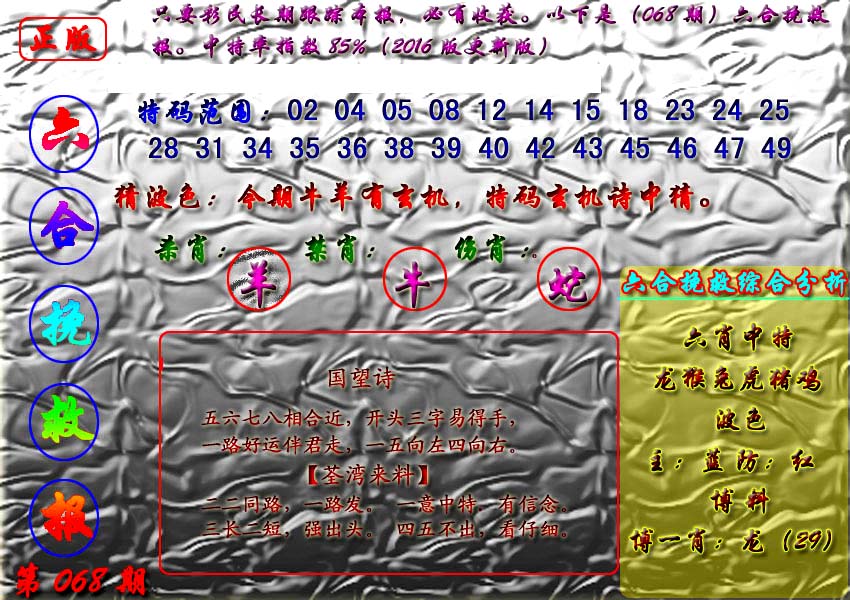 正版
只要彩民长期跟踪本报，必有收获。以下是（068期）六合挽救
报。中特率指数85%（2016版更新版）
六合挽救报
第068期
特码范围：02 04 05 08 12 14 15 18 23 24 25
28 31 34 35 36 38 39 40 42 43 45 46 47 49
猜波色：今期牛羊有玄机，特码玄机诗中猜。
杀肖：羊 禁肖：牛 伤肖：。蛇
国望诗
五六七八相合近，开头三字易得手，
一路好运伴君走，一五向左四向右。
【荃湾来料】
二二同路，一路发。 一意中特，有信念。
三长二短，强出头。 四五不出，看仔细。
六合挽救综合分析
六肖中特
龙猴兔虎猪鸡
波色
主：蓝防：红
博料
博一肖：龙（29）